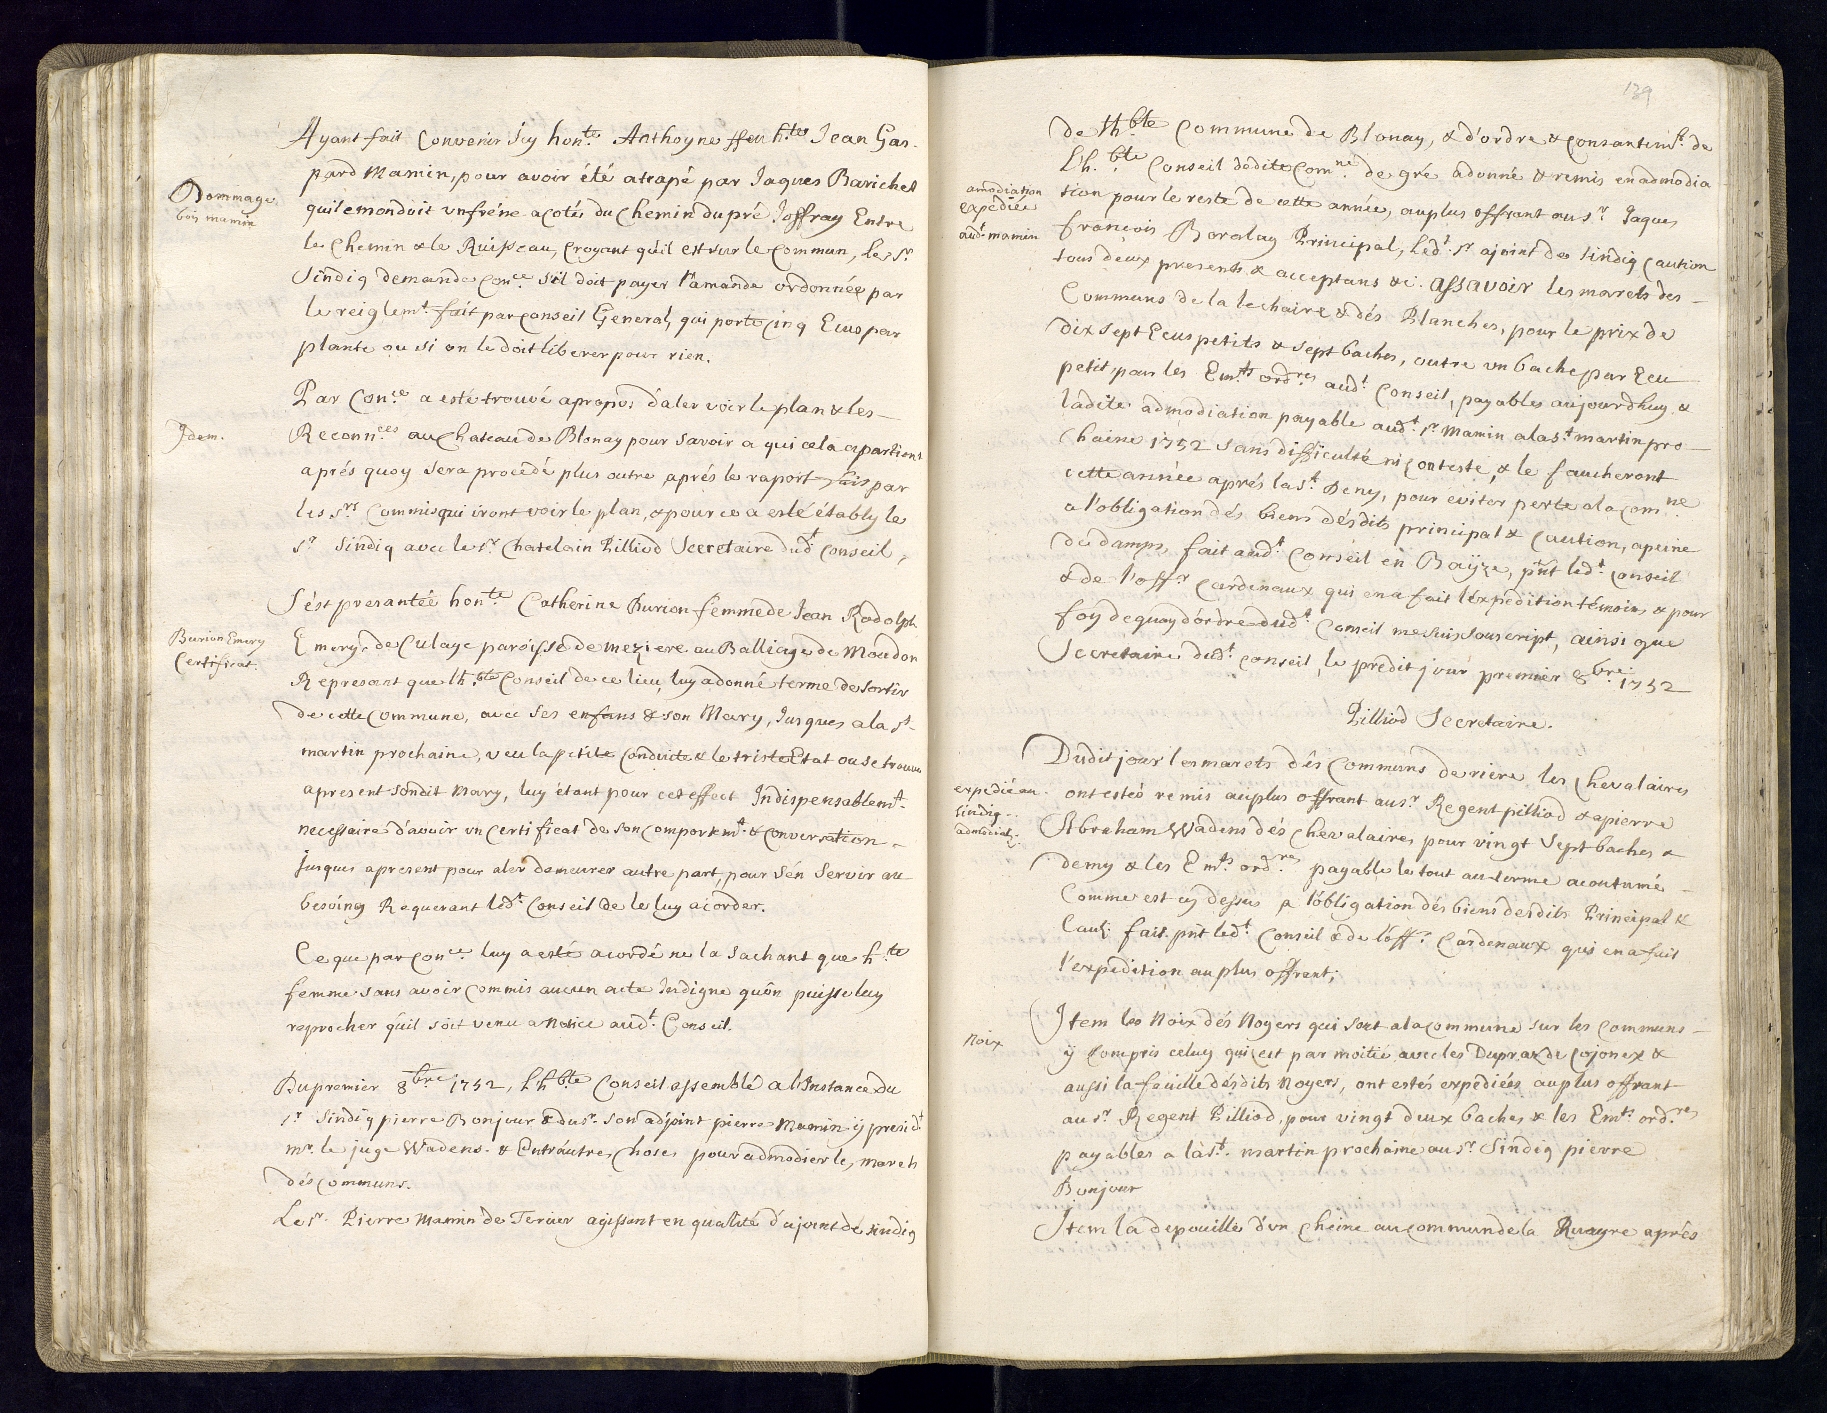 Ayant fait Convenir Icy hon.te Anthoyne ffeu h.tes Jean Gas-
pard Mamin, pour avoir été atrapé par Jaques Barichet
Dommage.
bois mamin
quil emondoit un fréne acotés du Chemin du pré Joffray Entre
le Chemin & le Ruisseau, Croyant qu'il est sur le Commun, le Sr
Sindiq demande Con.ce S'il doit payer l'amande ordonnée par
le reiglem.t fait par Conseil General, qui porte Cinq Ecus par
plante ou si on le doit liberer pour rien.
Par Con.ce a esté trouvé apropos d'aler voir le plan & les
Idem.
Reconn.ces au Chateau de Blonay pour savoir a qui cela apartient
aprés quoy Sera procedé plus outre aprés le raport fait par
les S.rs Commis qui iront voir le plan, & pour ce a esté établi le
S.r Sindiq avec le S.r Chatelain Pilliod Secretaire dud.t Conseil,
S'ést presantée hon.te Catherine Burion femme de Jean Rodolph
Burion Emery
Certificat.
Emery de Culaye paroisse de meziere au Balliage de Moudon
Represant que lh.ble Conseil de ce lieu, luy a donné terme de Sortir
de cette Commune, avec Ses enfans & son Mary, Jusques a la St
martin prochaine, veu la petite Conduite & le triste Etat ou se trouve
apresent sondit Mary, luy étant pour cet effect Indispensablem.t
necessaire d'avoir un Certificat de son Comportem.t & Conversation
Jusques apresent pour aler demeurer autre part, pour s'én Servir au
besoing Requerant led.t Conseil de le luy acorder.
Ce que par Con.ce luy a esté acordé ne la Sachant que h.te
femme Sans avoir Commis aucun acte Indigne qu'on puisse luy
reprocher qu'il soit venu a Notice aud.t Conseil.
Du premier 8bre 1752, Lh.ble Conseil assemblé a l'Instance du
S.r Sindiq pierre Bonjour & du S.r Son adjoint pierre Mamin ÿ presid.t
mr. le juge Wadens. & Entr'autres Choses pour admodier les marets
dés Communs.
Le S.r Pierre Mamin de Tercier agissant en qualité d'ajoint de Sindiq
139
de lh.ble Commune de Blonay, & d'ordre & Consantem.t de
Lh.ble Conseil dedite Com.ne de gré a donné & remis en admodia
amodiation
expediée
aud.t mamin
tion pour le reste de cette année, au plus offrant au S.r Jaques
francois Boralay Principal, Led.t S.r ajoint de Sindiq Caution
tous deux presents & acceptans &c. assavoir les marets des
Communs de la lechaire & dés Planches, pour le prix de
dix sept Ecus petits & sept baches, outre un bache par Ecu
petit, pour les Em.ts ord.res aud.t Conseil, payables aujourdhuy &
ladite admodiation payable aud.t S.r Mamin a la S.t martin pro-
Chaine 1752 Sans difficulté ni Conteste, & le faucheront
cette année aprés la S.t Deny, pour éviter perte a la Com.ne
a l'obligation dés biens désdits principal & Caution, a peine
de damps, fait aud.t Conseil en Baÿze, pnt led.t Conseil
& de l'off.r Cardenaux qui en a fait l'éxpedition témoins & pour
foy de quoy d'órdre dud.t Conseil me suis Souscript, ainsi que
Secretaire dud.t Conseil, le prédit jour premier 8bre. 1752
Pilliod Secretaire.
Dudit jour les marets dés Communs deriere les Chevalaires
expedié au
Sindiq
admodiat.
ont estés remis au plus offrant au S.r Regent pilliod & a pierre
Abraham Wadens dés Chevalaires pour vingt Sept baches &
demy & les Em.ts ord.res payable le tout au terme acoutumé
Comme est cy dessus a l'óbligation dés biens desdits Principal &
Caut. fait pnt led.t Conseil & de l'óff.r Cardenaux qui en a fait
l'expedition au plus offrant;
Item les Noix dés Noyers qui sont a la Commune sur les Communs
Noix
ÿ Compris celuy qui est par moitié avec les Dupraz de Cojonex &
aussi la feuille desdits Noyers, ont estés expediées au plus offrant
au S.r Regent Pilliod, pour vingt deux baches & les Em.ts ord.res
payables a la S.t martin prochaine au S.r Sindiq pierre
Bonjour
Item la depouille d'un Cheine au Commun de la Ruayre aprés